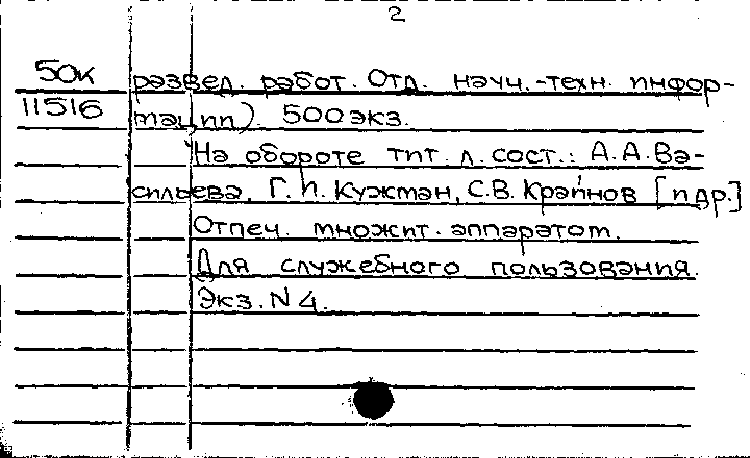 2
50к развед. работ. Отд. науч.-техн. инфор-
11516 мации). 500экз.
На обороте тит. л. сост.: А.А.Ва-
сильева, Г.И. Кужман, С.В. Крайнов [и др.]
Отпеч. множит. аппаратом.
Для служебного пользования.
Экз. N 4.